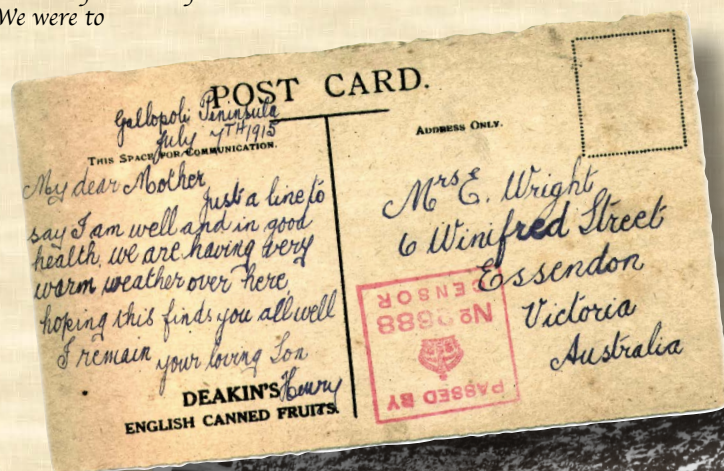 We were to
POST CARD.
Gallopoli Peninsula
July 7TH 1915
THIS SPACE FOR COMMUNICATION.
My dear Mother
Just a line to
say I am well and in good
health, we are having very
warm weather over here,
hoping this finds you all well
I remain your loving Son
Henry
DEAKIN'S
ENGLISH CANNED FRUITS.
ADDRESS ONLY.
Mrs E. Wright
6 Winifred Street
Essendon
Victoria
Australia
PASSED BY
No
CENSOR